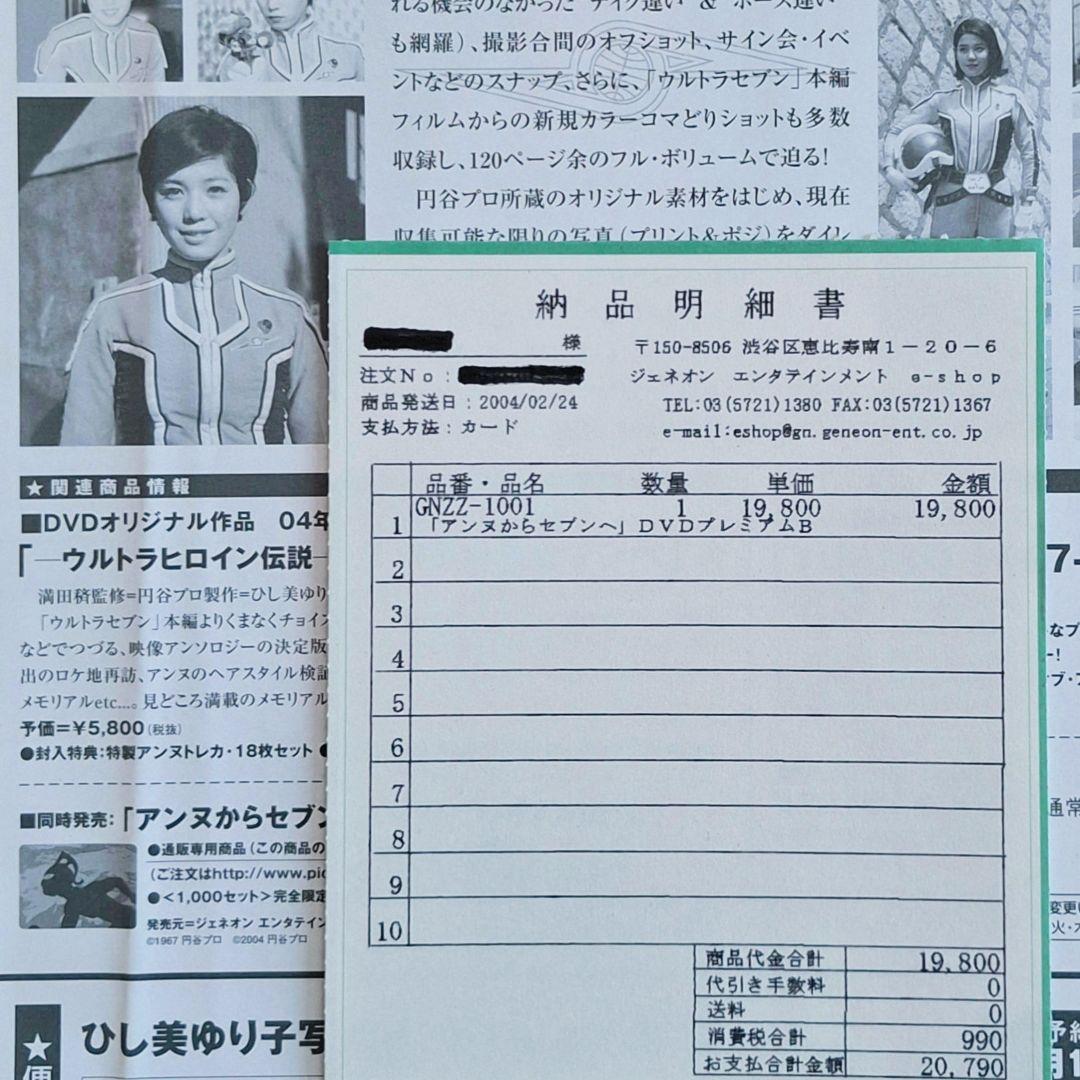 れる機会のなかった“テイク違い”＆“ポーズ違い”
も網羅）、撮影合間のオフショット、サイン会・イベ
ントなどのスナップ、さらに、「ウルトラセブン」本編
フィルムからの新規カラーコマどりショットも多数
収録し、120ページ余のフル・ボリュームで迫る!
円谷プロ所蔵のオリジナル素材をはじめ、現在
収集可能な限りの写真（プリント&ポジ）をダイレ
★関連商品情報
■DVDオリジナル作品 04年
「―ウルトラヒロイン伝説―
満田䅈監修=円谷プロ製作=ひし美ゆり
「ウルトラセブン」本編よりくまなくチョイス
などでつづる、映像アンソロジーの決定版
出のロケ地再訪、アンヌのヘアスタイル検証
メモリアルetc...。見どころ満載のメモリアル
予価=¥5,800(税抜)
●封入特典:特製アンヌトレカ・18枚セット ●
■同時発売:「アンヌからセブン
●通販専用商品(この商品の
(ご注文はhttp://www.pio
●<1,000セット>完全限定
発売元=ジェネオン エンタテイン
©1967 円谷プロ ©2004 円谷プロ
★便
ひし美ゆり子写
納品明細書
様
注文No:
商品発送日:2004/02/24
支払方法:カード
〒150-8506 渋谷区恵比寿南1-20-6
ジェネオン エンタテインメント e-shop
TEL:03(5721)1380 FAX:03(5721)1367
e-mail:eshop@gn.geneon-ent.co.jp
品番・品名 数量 単価 金額
GNZZ-1001 1 19,800 19,800
1 「アンヌからセブンへ」DVDプレミアムB
2
3
4
5
6
7
8
9
10
商品代金合計 19,800
代引き手数料 0
送料 0
消費税合計 990
お支払合計金額 20,790
7-
なプ
ー!
ブ・フ
通常
変更
火・水
予約